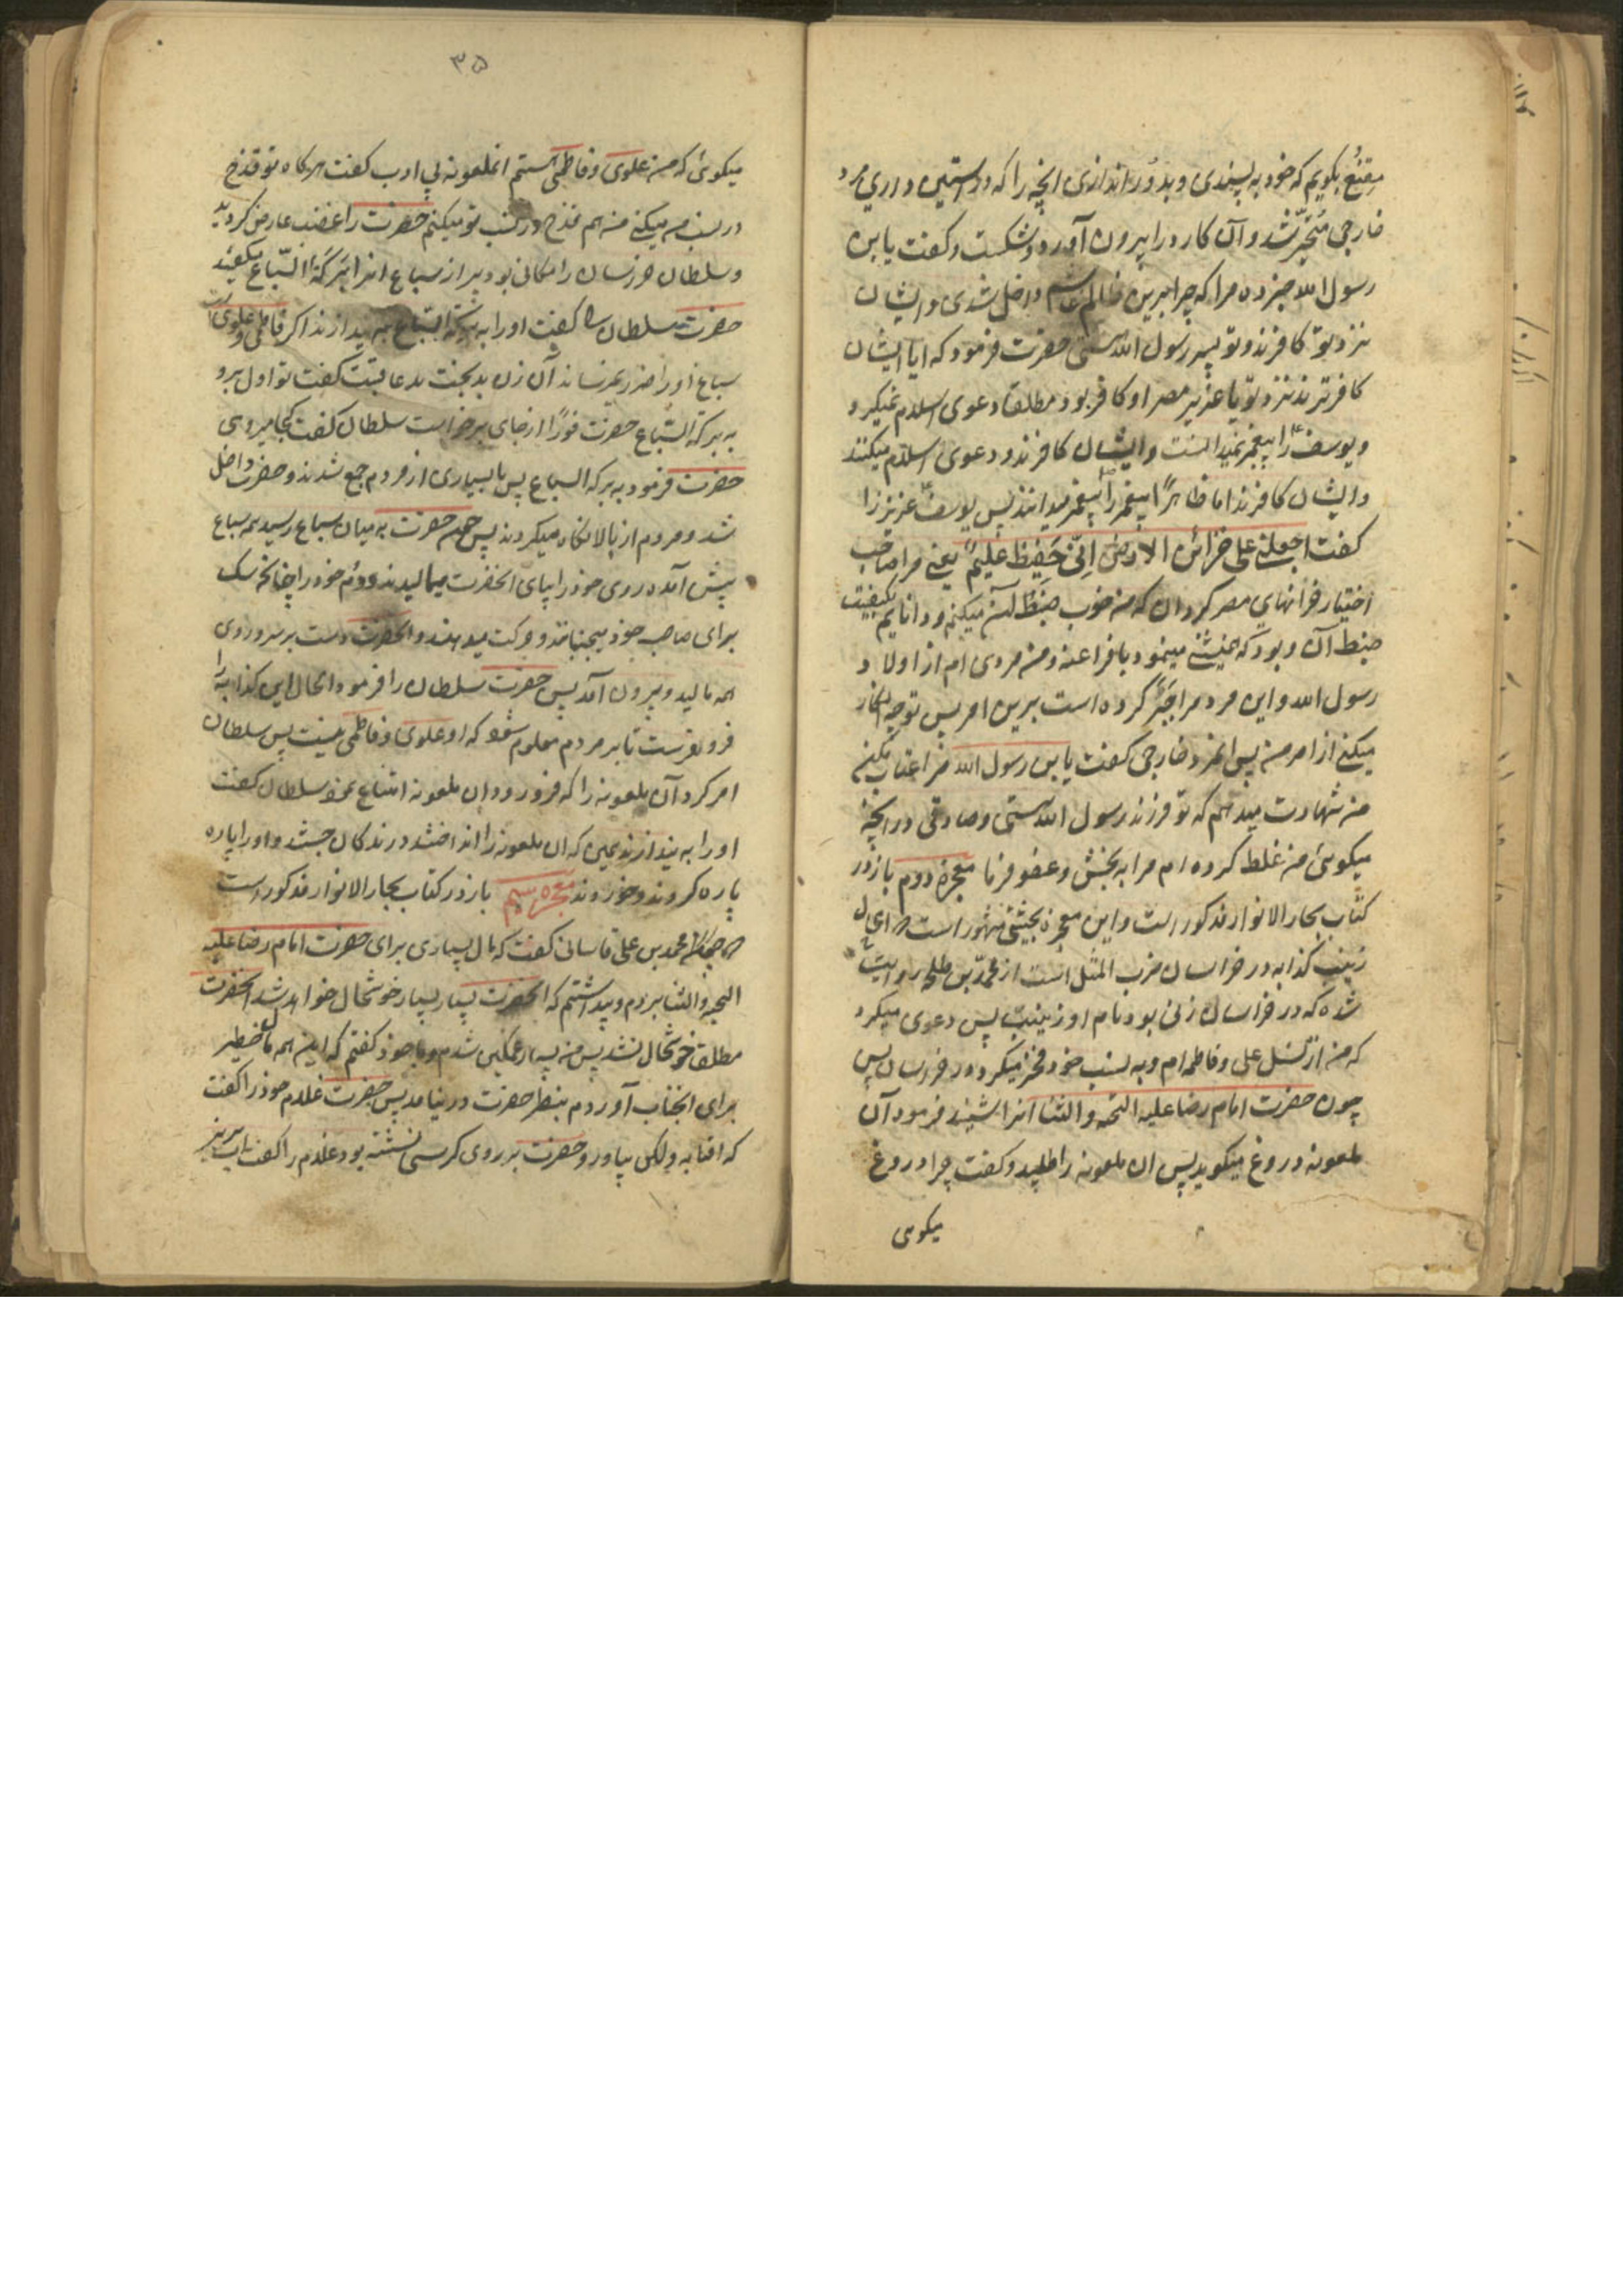 مقنع بگویم که خود به پسندی و بدور اندازی انچه را که در استین داری مرد
خارجی متحیر شد و آن کارد را بیرون آورد و شکست و کفت یابن
رسول الله خبر ده مرا که چرا برین ظالم داخل شدی و ایشان
نزد تو کافرند و تو پسر رسول الله هستی حضرت فرمود که ایا ایشان
کافرترند نزد تو یا عزیز مصر او کافر بود مطلقا دعوی اسلام نمیکرد
و یوسف را پیغمبر نمیدانست و ایشان کافرند و دعوی اسلام میکنند
و ایشان کافرند اما ظاهرا پیغمبر را پیغمبر میدانند پس یوسف عزیز را
کفت اجعلنی علی خزائن الارض انی حفیظ علیم یعنی مرا صاحب
اختیار خزانهای مصر کردان که من خوب ضبط آن میکنم و دانایم بکیفیت
ضبط آن و بود که همنشینی مینمود با فراعنه و من مردی ام از اولاد
رسول الله و این مرد مرا جبر کرده است برین امر پس تو چه انکار
میکنی از امر من پس انمرد خارجی کفت یابن رسول الله مرا عتاب مکن
من شهادت میدهم که تو فرزند رسول الله هستی و صادقی در انچه
میکوئی من غلط کرده ام مرا به بخش و عفو فرما معجزه دوم باز در
کتاب بحار الانوار مذکور است و این معجزه بحیثی مشهور است
زینب کذابه در خراسان ضرب المثل است از محمد بن طلحه روایت
شده که در خراسان زنی بود نام او زینب پس دعوی میکرد
که من از نسل علی و فاطمه ام و به نسب خود فخر میکرد در خراسان پس
چون حضرت امام رضا علیه التحیه والثنا انرا شنید فرمود آن
ملعونه دروغ میکوید پس ان ملعونه را طلبید و کفت چرا دروغ
میکوئی
۳۵
میکوئی که من علوی و فاطمی هستم انملعونه بی ادب کفت هر کاه تو قدح
در نسب من میکنی من هم قدح در نسب تو میکنم حضرت را غضب عارض کردید
و سلطان خراسان را مکانی بود پر از سباع انرا برکة السباع میکفتند
حضرت سلطان را کفت او را به برکة السباع به بیندازند اکر فاطمی و علوی است
سباع او را ضرر نمیرساند آن زن بدبخت بدعاقبت کفت تو اول برو
به برکة السباع حضرت فورا از جای برخواست سلطان کفت کجا میروی
حضرت فرمود به برکه السباع پس بسیاری از مردم جمع شدند و حضرت داخل
شد و مردم از بالا نکاه میکردند پس چون حضرت به میان سباع رسید همه سباع
پیش آمده روی خود را بپای انحضرت میمالیدند و دم خود را چنانچه سک
برای صاحب خود میجنباند و حرکت میدهند و انحضرت دست بر سر و روی
همه مالید و بیرون آمد پس حضرت سلطان را فرمود الحال این کذابه را
فرو بفرست تا بر مردم معلوم شود که او علوی و فاطمی نیست پس سلطان
امر کرد آن ملعونه را که فرو رود ان ملعونه امتناع نمود سلطان کفت
او را به بیندازند همین که ان ملعونه را انداختند درندکان جستند و او را پاره
پاره کردند و خوردند معجزه سیم باز در کتاب بحار الانوار مذکور است
محمد بن علی قاسانی کفت که مال بسیاری برای حضرت امام رضا علیه
التحیه والثنا بردم و پنداشتم که انحضرت بسیار بسیار خوشحال خواهد شد انحضرت
مطلقا خوشحال نشد پس من بسیار غمکین شدم و با خود کفتم که این همه مال خطیر
برای انجناب آوردم بنظر حضرت در نیامد پس حضرت غلام خود را کفت
که افتابه و لکن بیاور و حضرت بر روی کرسی نشسته بود غلام را کفت آب بریز